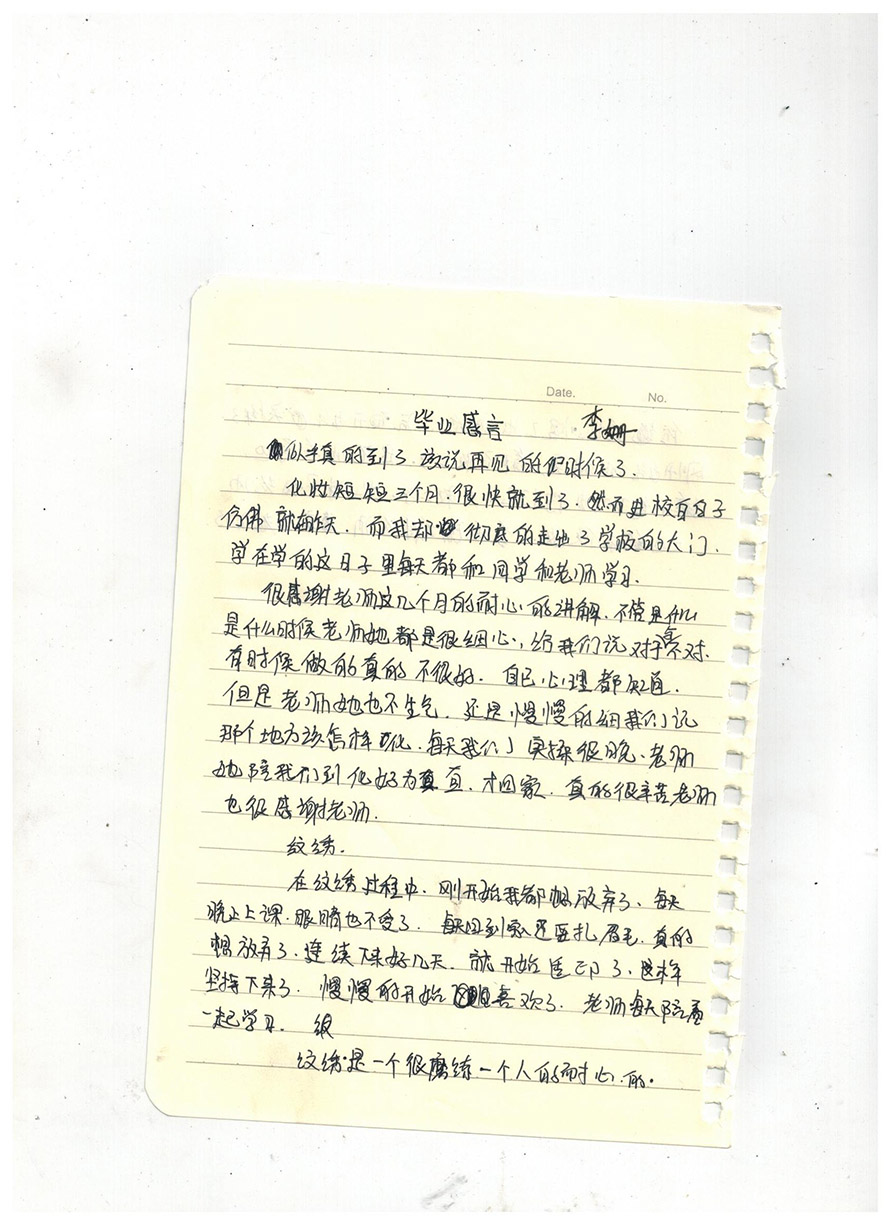 Date. No.
毕业感言 李姗
似乎真的到了该说再见的时候了.
化妆短短三个月.很快就到了.然而进校百日子
仿佛就在昨天.而我却彻底的走出了学校的大门.
学在学的这日子里每天都和同学和老师学习.
很感谢老师这几个月的耐心的讲解.不管是什么
是什么时候老师她都是很细心,给我们说对于不对.
有时候做的真的不很好.自己心理都知道.
但是老师她也不生气.还是慢慢的细我们说
那个地方该怎样化.每天我们实操很晚.老师
她陪我们到化好为直.才回家.真的很辛苦老师
也很感谢老师.
纹绣.
在纹绣过程中.刚开始我都想放弃了.每天
晚上上课.眼睛也不受了.每天回到家还要扎眉毛.真的
想放弃了.连续下来好几天.就开始适应了.这样
坚持下来了.慢慢的开始喜欢了.老师每天陪着
一起学习.
纹绣是一个很磨练一个人的耐心.的.